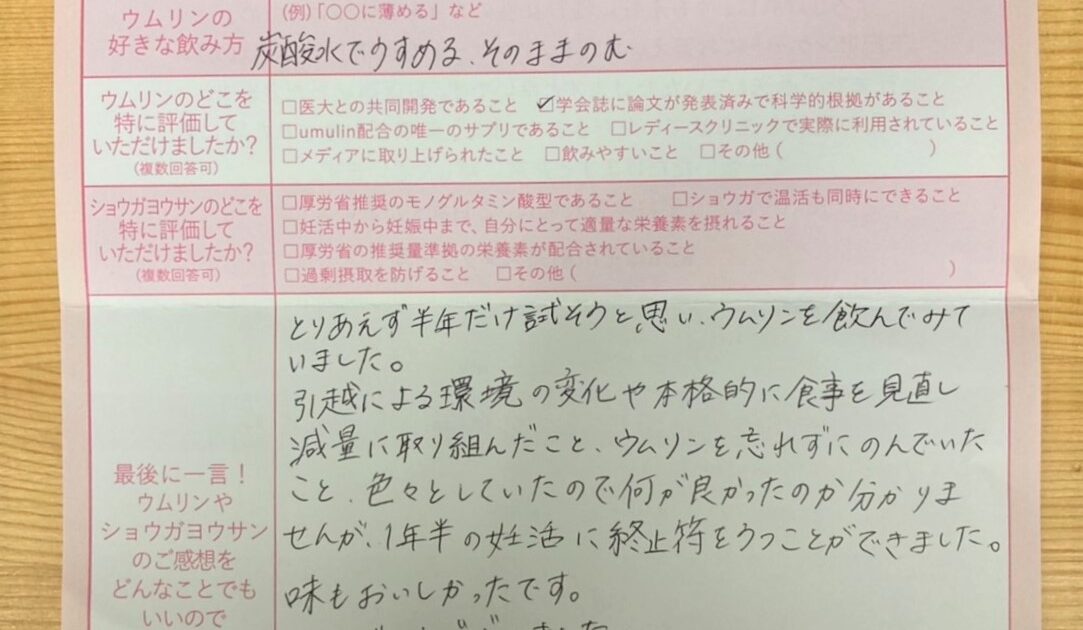 ウムリンの
好きな飲み方
(例)「○○に薄める」など
炭酸水でうすめる、そのままのむ
ウムリンのどこを
特に評価して
いただけましたか?
(複数回答可)
□医大との共同開発であること ☑学会誌に論文が発表済みで科学的根拠があること
□umulin配合の唯一のサプリであること □レディースクリニックで実際に利用されていること
□メディアに取り上げられたこと □飲みやすいこと □その他( )
ショウガヨウサンのどこを
特に評価して
いただけましたか?
(複数回答可)
□厚労省推奨のモノグルタミン酸型であること □ショウガで温活も同時にできること
□妊活中から妊娠中まで、自分にとって適量な栄養素を摂れること
□厚労省の推奨量準拠の栄養素が配合されていること
□過剰摂取を防げること □その他( )
最後に一言!
ウムリンや
ショウガヨウサン
のご感想を
どんなことでも
いいので
とりあえず半年だけ試そうと思い、ウムリンを飲んでみて
いました。
引越による環境の変化や本格的に食事を見直し
減量に取り組んだこと、ウムリンを忘れずにのんでいた
こと、色々としていたので何が良かったのか分かりま
せんが、1年半の妊活に終止符をうつことができました。
味もおいしかったです。